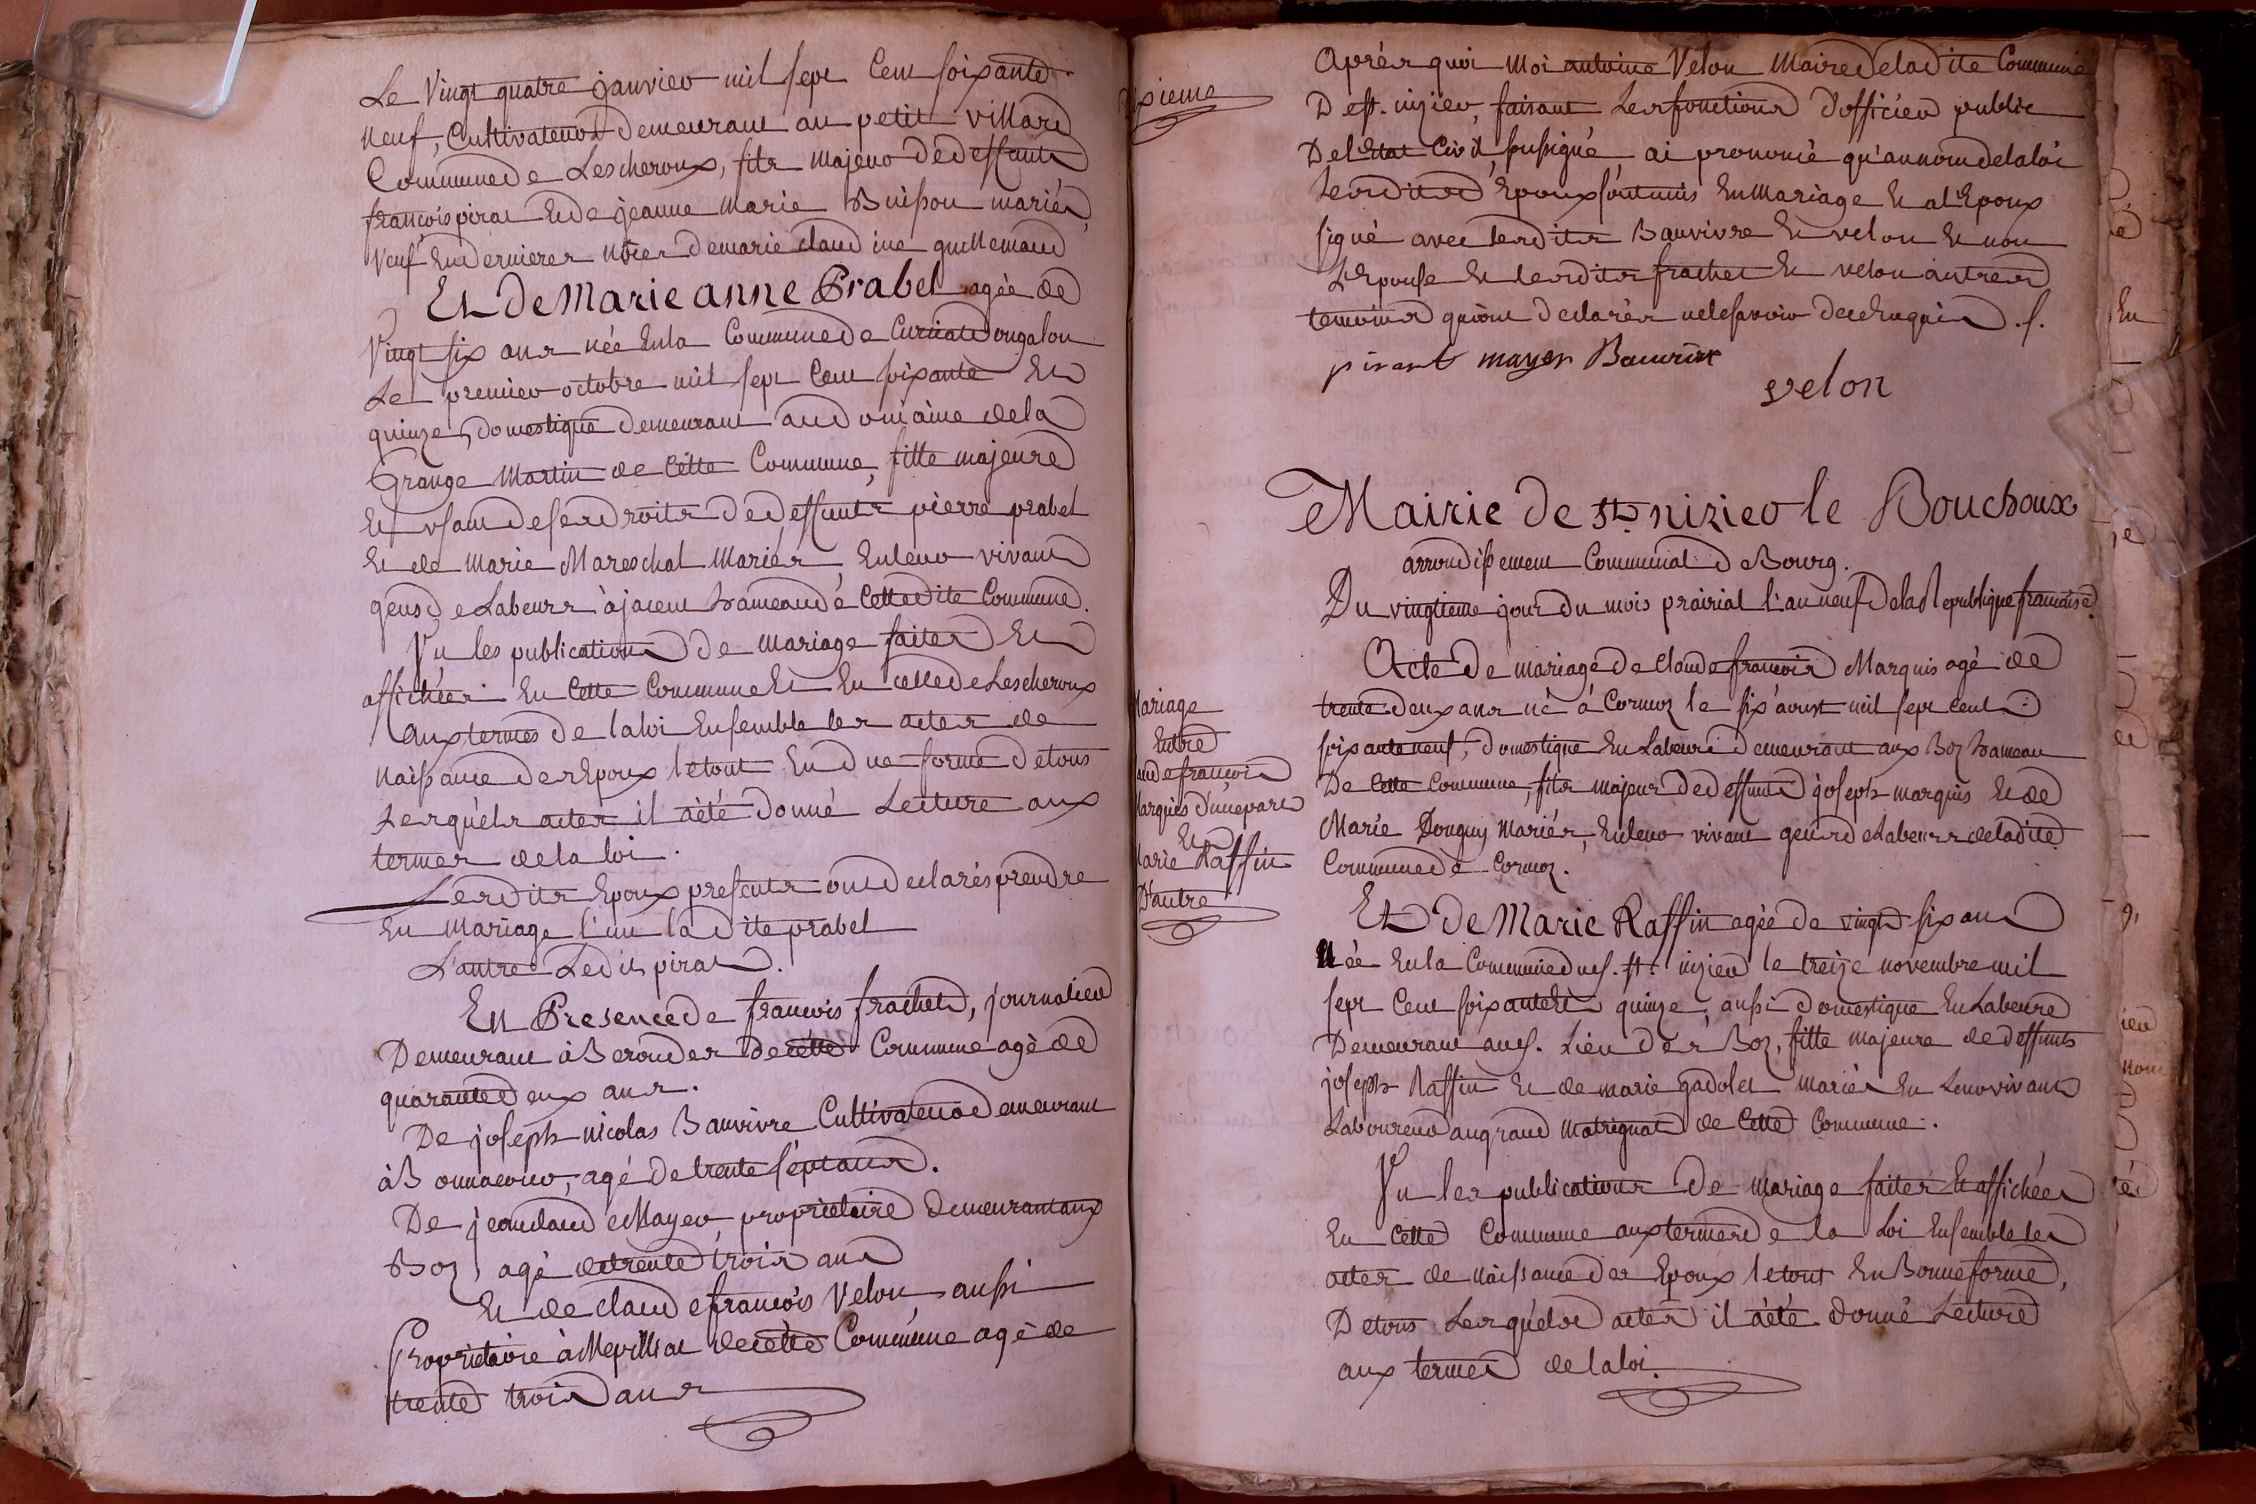 Le Vingt quatre janvier mil sept Cent soixante
neuf, Cultivateur demeurant au petit villard
Commune de Lescheroux, fils majeur de deffunts
françois pirat Et de jeanne marie Buisson mariés,
Veuf En dernieres nôces de marie claudine guillemaud
Et de Marie anne Prabel agée de
Vingt six ans née En la Commune de Curciat dongalon
Le premier octobre mil sept Cent soixante Et
quinze, domestique demeurant au domaine de la
Grange Martin de Cette Commune, fille majeure
Et usant de ses droits de deffunts pierre prabel
Et de Marie Mareschal Mariés, En leur vivant
gens de Labeurs à jacent hameau de Cette dite Commune.
Vu les publications de mariage faites Et
affichées En Cette Commune Et En celle de Lescheroux
Aux termes de la loi Ensemble les actes de
Naissance des Epoux le tout En due forme de tous
Lesquéls actes il a été donné Lecture aux
termes de la loi.
Lesdits Epoux presents ont declarés prendre
En Mariage l'un la dite prabel
L'autre Ledit pirat.
En Presence de francois frachet, journalier
Demeurant à Berondes de cette Commune agé de
quarante deux ans.
De joseph nicolas Bauvivre Cultivateur demeurant
à Bonnacour, agé de trente sept ans.
De jean claude Mayer proprietaire demeurant aux
Boz, agé de trente trois ans
Et de claude francois Velon, aussi
Proprietaire à Mepilliat de cette Commune agé de
trente trois ans
Après quoi Moi antoine Velon Maire de la dite Commune
De St. nizier, faisant Les fonctions d'officier public
De l'Etat Civil, sussigné, ai prononcé qu'au nom de la loi
Lesdits Epoux sont unis En Mariage Et a l'Epoux
signé avec lesdits Bauvivre Et velon Et non
L'Epouse Et lesdits frachet Et velon autres
temoins qui ont declarés ne le savoir de ce Enquis. /.
pirat mayer Bauvivre
velon
Mairie de St. nizier le Bouchoux
arrondissement Communal de Bourg.
Du vingtieme jour du mois prairial l'an neuf de la Republique francaise
Mariage
Entre
claude francois
Marquis d'une part
Et
Marie Raffin
D'autre
Acte de mariage de claude francois Marquis agé de
trente deux ans né à Cormoz le six avust mil sept cent
soixante neuf, domestique En Labeure demeurant aux Boz hameau
De Cette Commune, fils majeur de deffunts joseph marquis Et de
Marie Donguy Mariés, En leur vivant gens de Labeurs de la dite
Commune de Cormoz.
Et de Marie Raffin agée de vingt six ans
Née En la Commune dus. St. nizier le treize novembre mil
sept Cent soixante Et quinze, aussi domestique En Labeure
Demeurant aus. Lieu des Boz, fille majeure de deffunts
joseph Raffin Et de marie gadolet mariés En Leur vivant
Laboureur au grand Matrignat de Cette Commune.
Vu les publications de Mariage faites Et affichées
En Cette Commune aux termes de la Loi Ensemble les
actes de naissance des Epoux le tout En Bonne forme,
De tous Lesquéls actes il a été donné Lecture
aux termes de la loi.